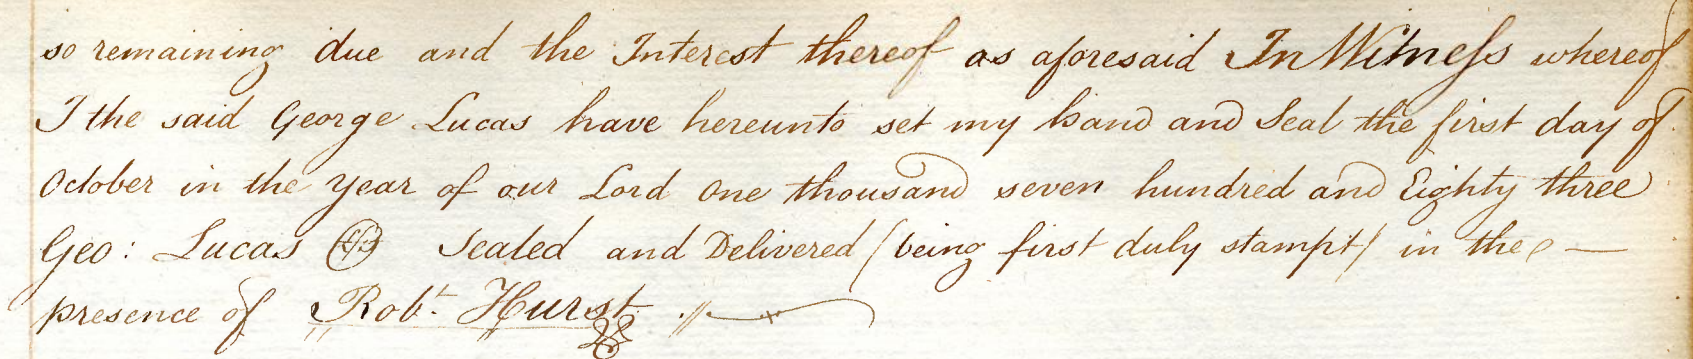 so remaining due and the Interest thereof as aforesaid In Witness whereof
I the said George Lucas have hereunto set my hand and Seal the first day of
October in the year of our Lord One thousand seven hundred and Eighty three
Geo: Lucas Sealed and Delivered (being first duly stampt) in the —
presence of Robt. Hurst